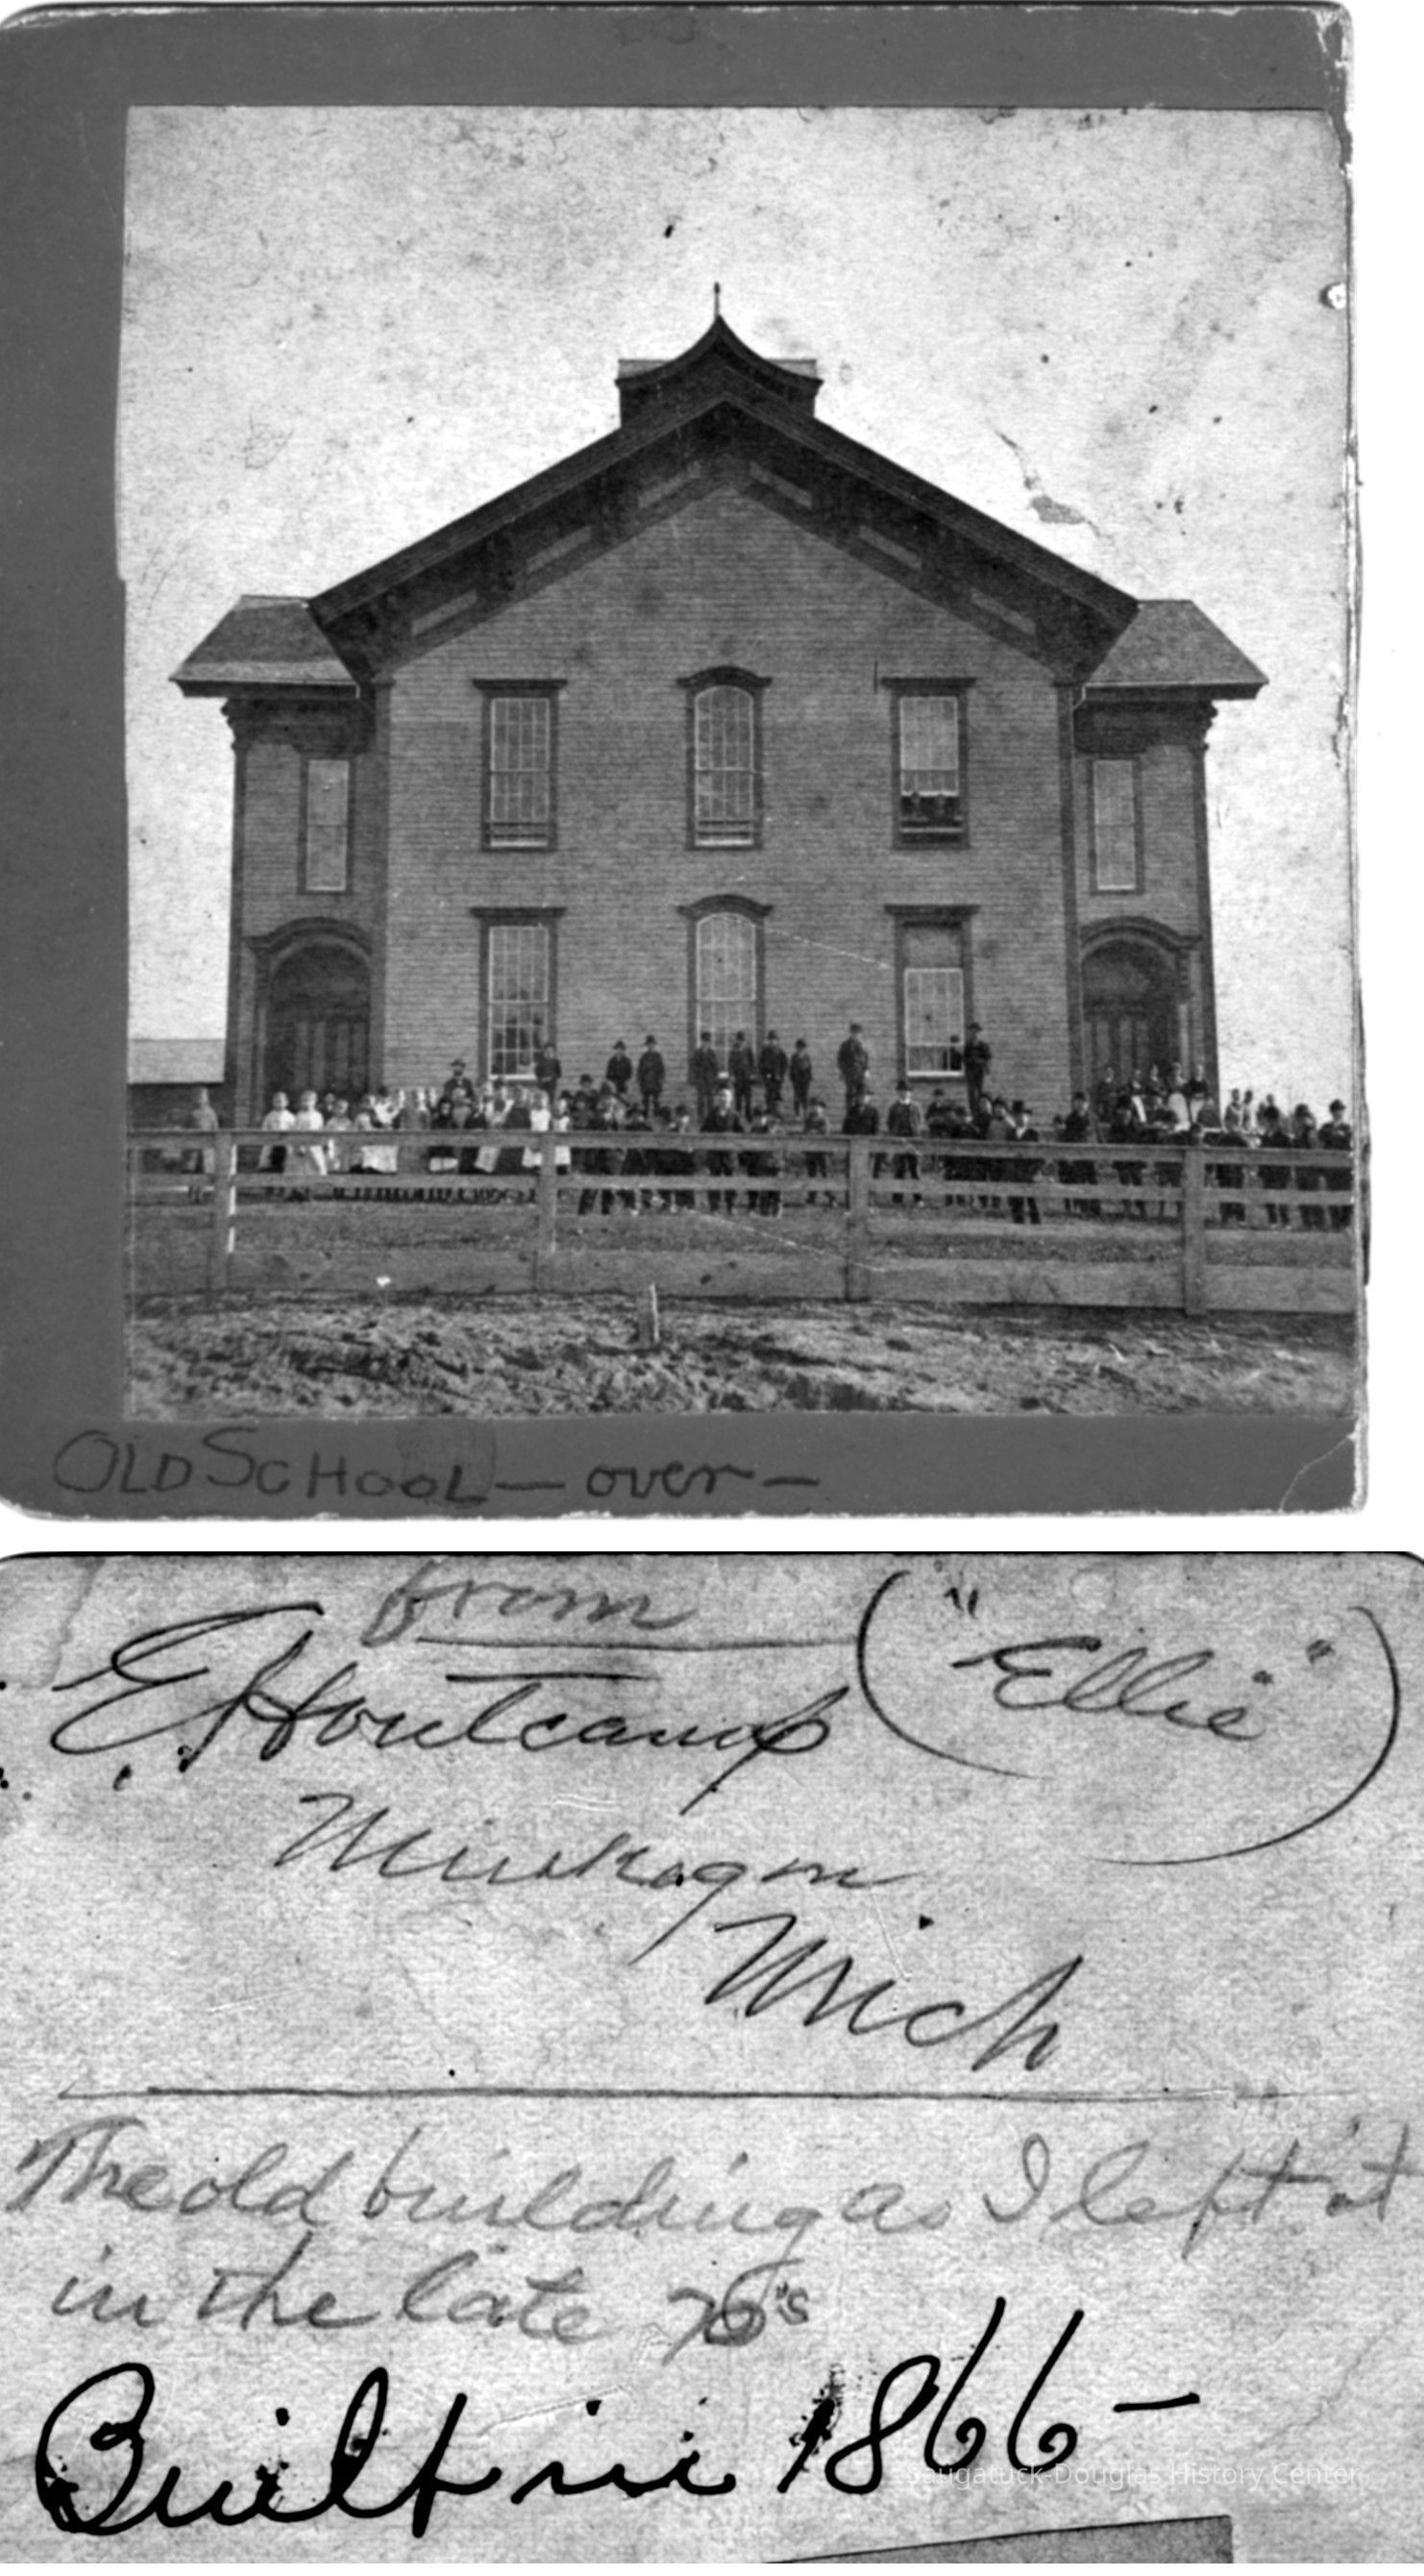 OLD SCHOOL — over —
from
E Houtcamp ("Ellie")
Muskegon
Mich
The old building as I left it
in the late 70's
Built in 1866 —
Saugatuck-Douglas History Center